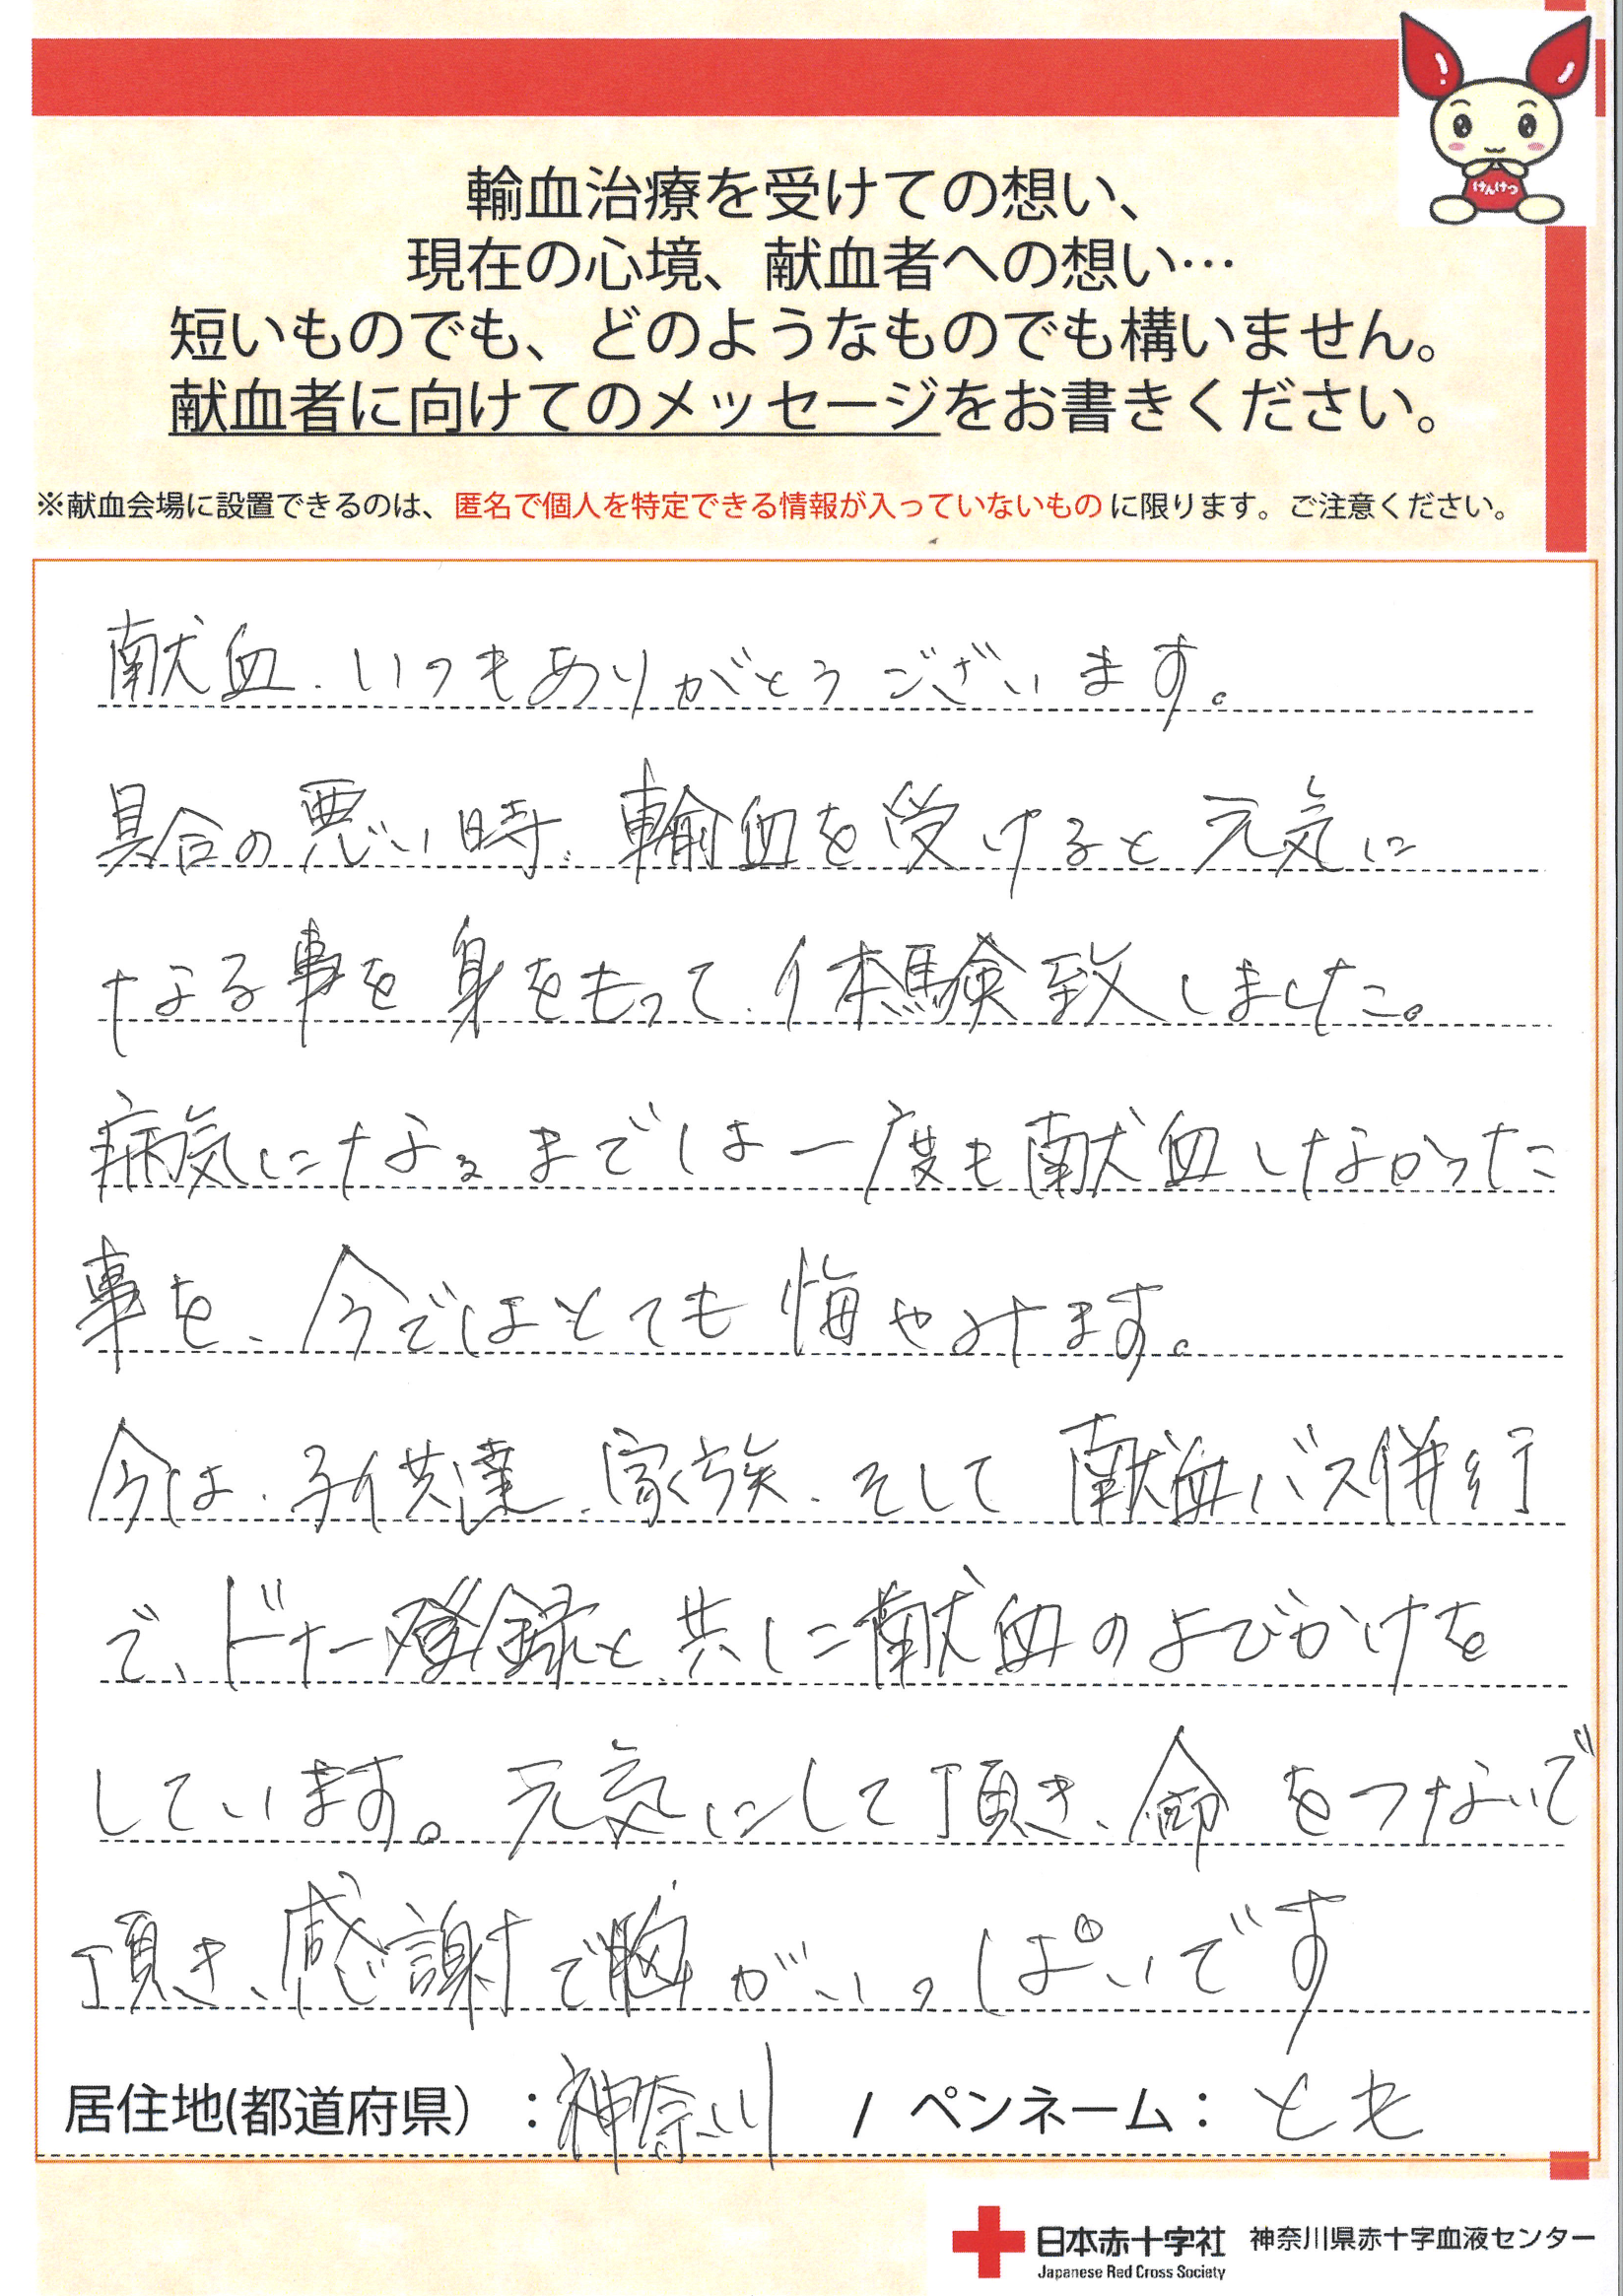 けんけつ
輸血治療を受けての想い、
現在の心境、献血者への想い…
短いものでも、どのようなものでも構いません。
献血者に向けてのメッセージをお書きください。
※献血会場に設置できるのは、匿名で個人を特定できる情報が入っていないものに限ります。ご注意ください。
献血、いつもありがとうございます。
具合の悪い時、輸血を受けると元気に
なる事を身をもって、体験致しました。
病気になるまでは一度も献血しなかった
事を、今ではとても悔やみます。
今は、子供達、家族、そして献血バス併行
で、ドナー登録と共に献血のよびかけを
しています。元気にして頂き、命をつないで
頂き、感謝で胸がいっぱいです
居住地(都道府県)：神奈川 / ペンネーム：とも
日本赤十字社 神奈川県赤十字血液センター
Japanese Red Cross Society